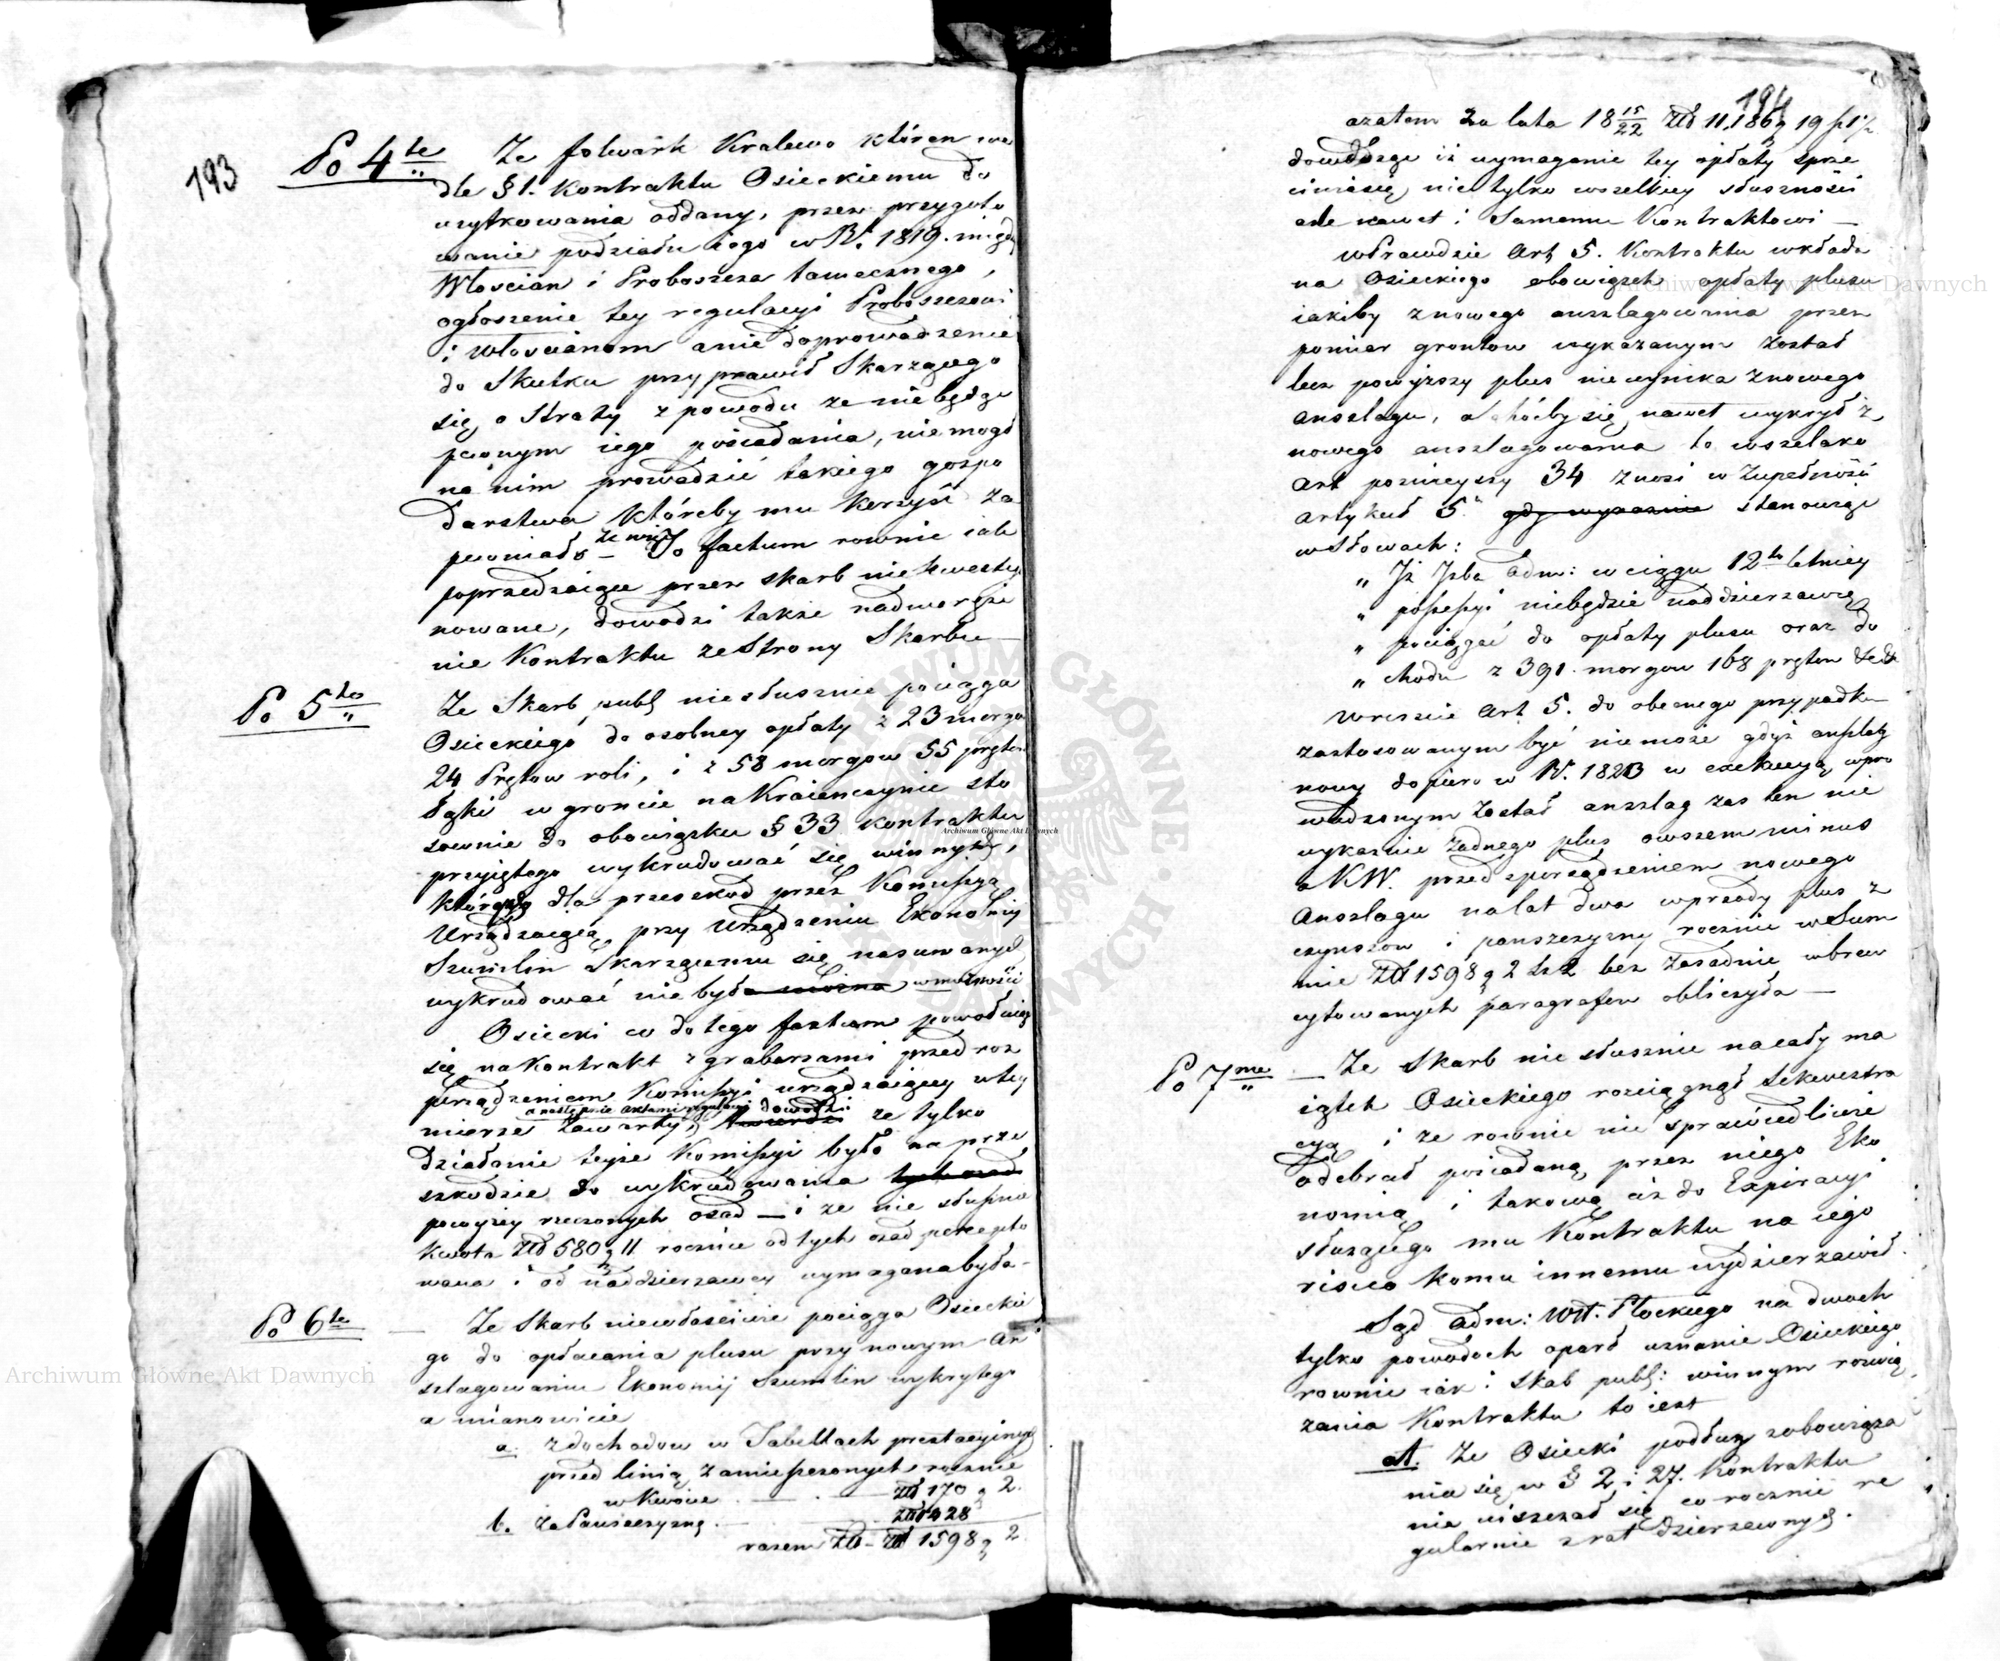 193
Po 4te Że folwark Kralewo któren we
dle § 1. Kontraktu Osieckiemu do
użytkowania oddany, przez przygoto
wanie podziału iego w R. 1819. między
Włościan i Proboszcza tamecznego,
ogłoszenie tey regulacyi Proboszczowi
i Włościanom a nie doprowadzenie
do Skutku przyprawił Skarzącego
się o Straty z powodu ze niebędąc
pewnym iego posiadania, nie mogł
na nim prowadzić takiego gospo
darstwa któreby mu korzyść za
pewniało – To factum rownie iak
poprzedzaiące przez skarb niekwestyo
nowane, dowodzi także nadweręże
nie Kontraktu ze Strony Skarbu –
Po 5to Ze Skarb publ niesłusznie pociąga
Osieckiego do osobney opłaty z 23 morgo
24 Prętow roli, i z 58 morgow 55 pręto
łąki w groncie na Kraienczynie sto
sownie do obowiązku § 33 kontraktu
przyiętego wykrudować się winnych,
których dla przeszkod przez Komissyą
Urządzaiącą przy Urządzeniu Ekonomiy
Szumlin Skarzącemu się nasuwanych
wykrudować nie był w możności
Osiecki co do tego factum powołuiąc
się na Kontrakt z grabarzami przed roz
porządzeniem Komissyi urządzaiącey w tey
a następnie aktami regulacyi dowodzi
mierze zawarty, twierdzi ze tylko
działanie teyze Komissyi było na prze
szkodzie do wykrudowania tych osad
powyżey rzeczonych osad – i ze nie słuszna
kwota Złł 580 g 11 rocznie od tych osad percepto
wana i od naddzierzawcy wymagana była –
Po 6te – Ze Skarb niewłaściwie pociąga Osieckie
go do opłacania plusu przy nowym An
szlagowaniu Ekonomij Szumlin wykrytego
a mianowicie
a. z dochodow w Tabellach prestacyinych
przed linią zamieszczonych rocznie
w kwocie – . – Złł 170 g 2.
b. Za Pańszczyznę . – Złł 1428
razem Złł – 1598 g 2.
194
a zatem za lata 18 15/22 Złł 11,186 g 19
dowodząc iż wymaganie tey opłaty sprze
ciwia się nietylko wszelkiey słuszności
ale nawet i Samemu Kontraktowi –
wPrawdzie Art 5. Kontraktu wkłada
na Osieckiego obowiązek opłaty plusu
iakiby z nowego anszlagowania przez
pomiar grontow wykazanym został
lecz powyższy plus nie wynika z nowego
anszlagu, a choćby się nawet wykrył z
nowego anszlagowania to wszelako
Art poznieyszy 34 znosi w zupełności
artykuł 5. gdy wyraznie stanowiąc
w Słowach:
„ Iż Izba Adm: w ciągu 12to letniey
„ possessyi niebędzie naddzierzawcę
„ pociągać do opłaty plusu oraz do
„ chodu z 391. morgow 168 prętow &c&
Wreszcie Art 5. do obecnego przypadku
zastosowanym być nie może gdyż anszlag
nowy dopiero w R. 1823 w exekucyą wpro
wadzonym został anszlag zas ten nie
wykazuie żadnego plus owszem minus
a KW. przed sporządzeniem nowego
Anszlagu na lat dwa wprzódy plus z
czynszow i panszczyzny rocznie w Sum
mie Złł 1598 g 2 bez zasadnie wbrew
cytowanych paragrafow obliczyła –
Po 7me – Ze Skarb nie słusznie na cały ma
iątek Osieckiego rozciągnął Sekwestra
cyą i ze rownie nie sprawiedliwie
odebrał posiadaną przez niego Eko
nomią i takową aż do Expiracyi
służącego mu Kontraktu na iego
risico komu innemu wydzierzawił.
Sąd Adm: Wtt. Płockiego na dwoch
tylko powodach oparł uznanie Osieckiego
rownie iak i Skab publ: winnym rozwią
zania Kontraktu to iest
a. Ze Osiecki podług zobowiąza
nia się w § 2 i 27. Kontraktu
nie uiszczał się co rocznie re
gularnie z rat dzierzawnych.